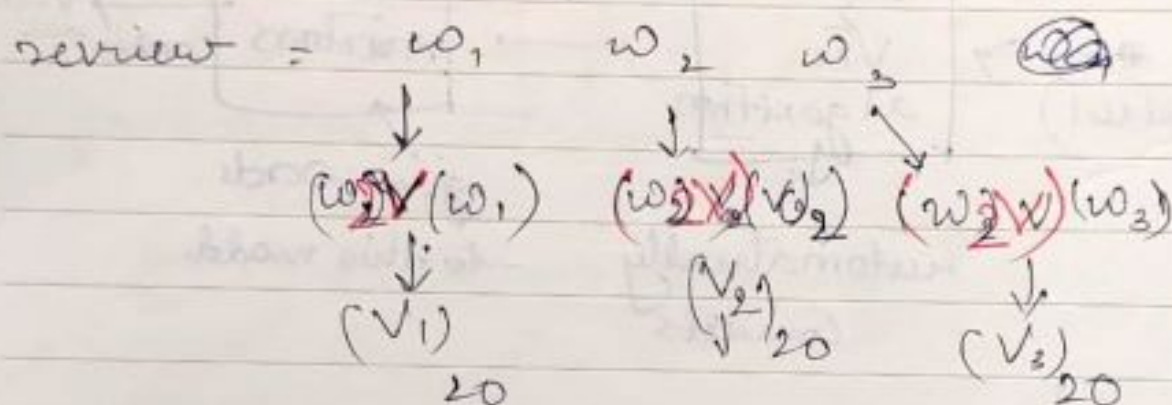 review = w₁ w₂ w₃
(w2V(w₁) (w2V)(w₂) (w2V)(w₃)
(V₁) (V₂) (V₃)
20 20 20